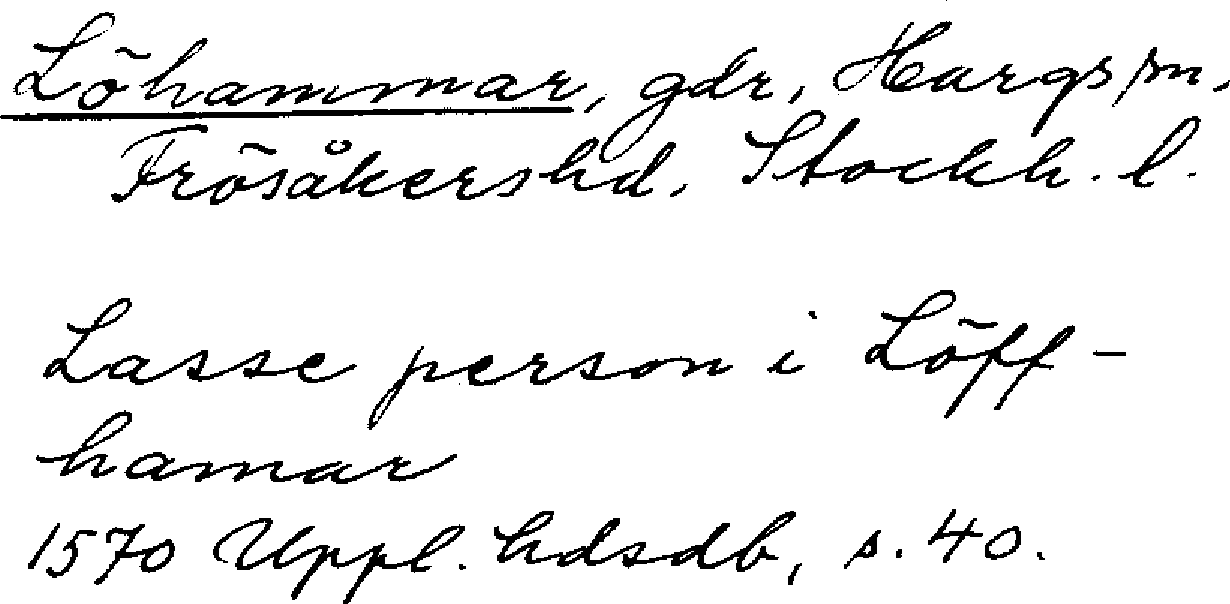 Löhammar, gdr, Hargs sn,
Frösåkers hd. Stockh. l.
Lasse person i Löff-
hamar
1570 Uppl. hdsdb, s. 40.